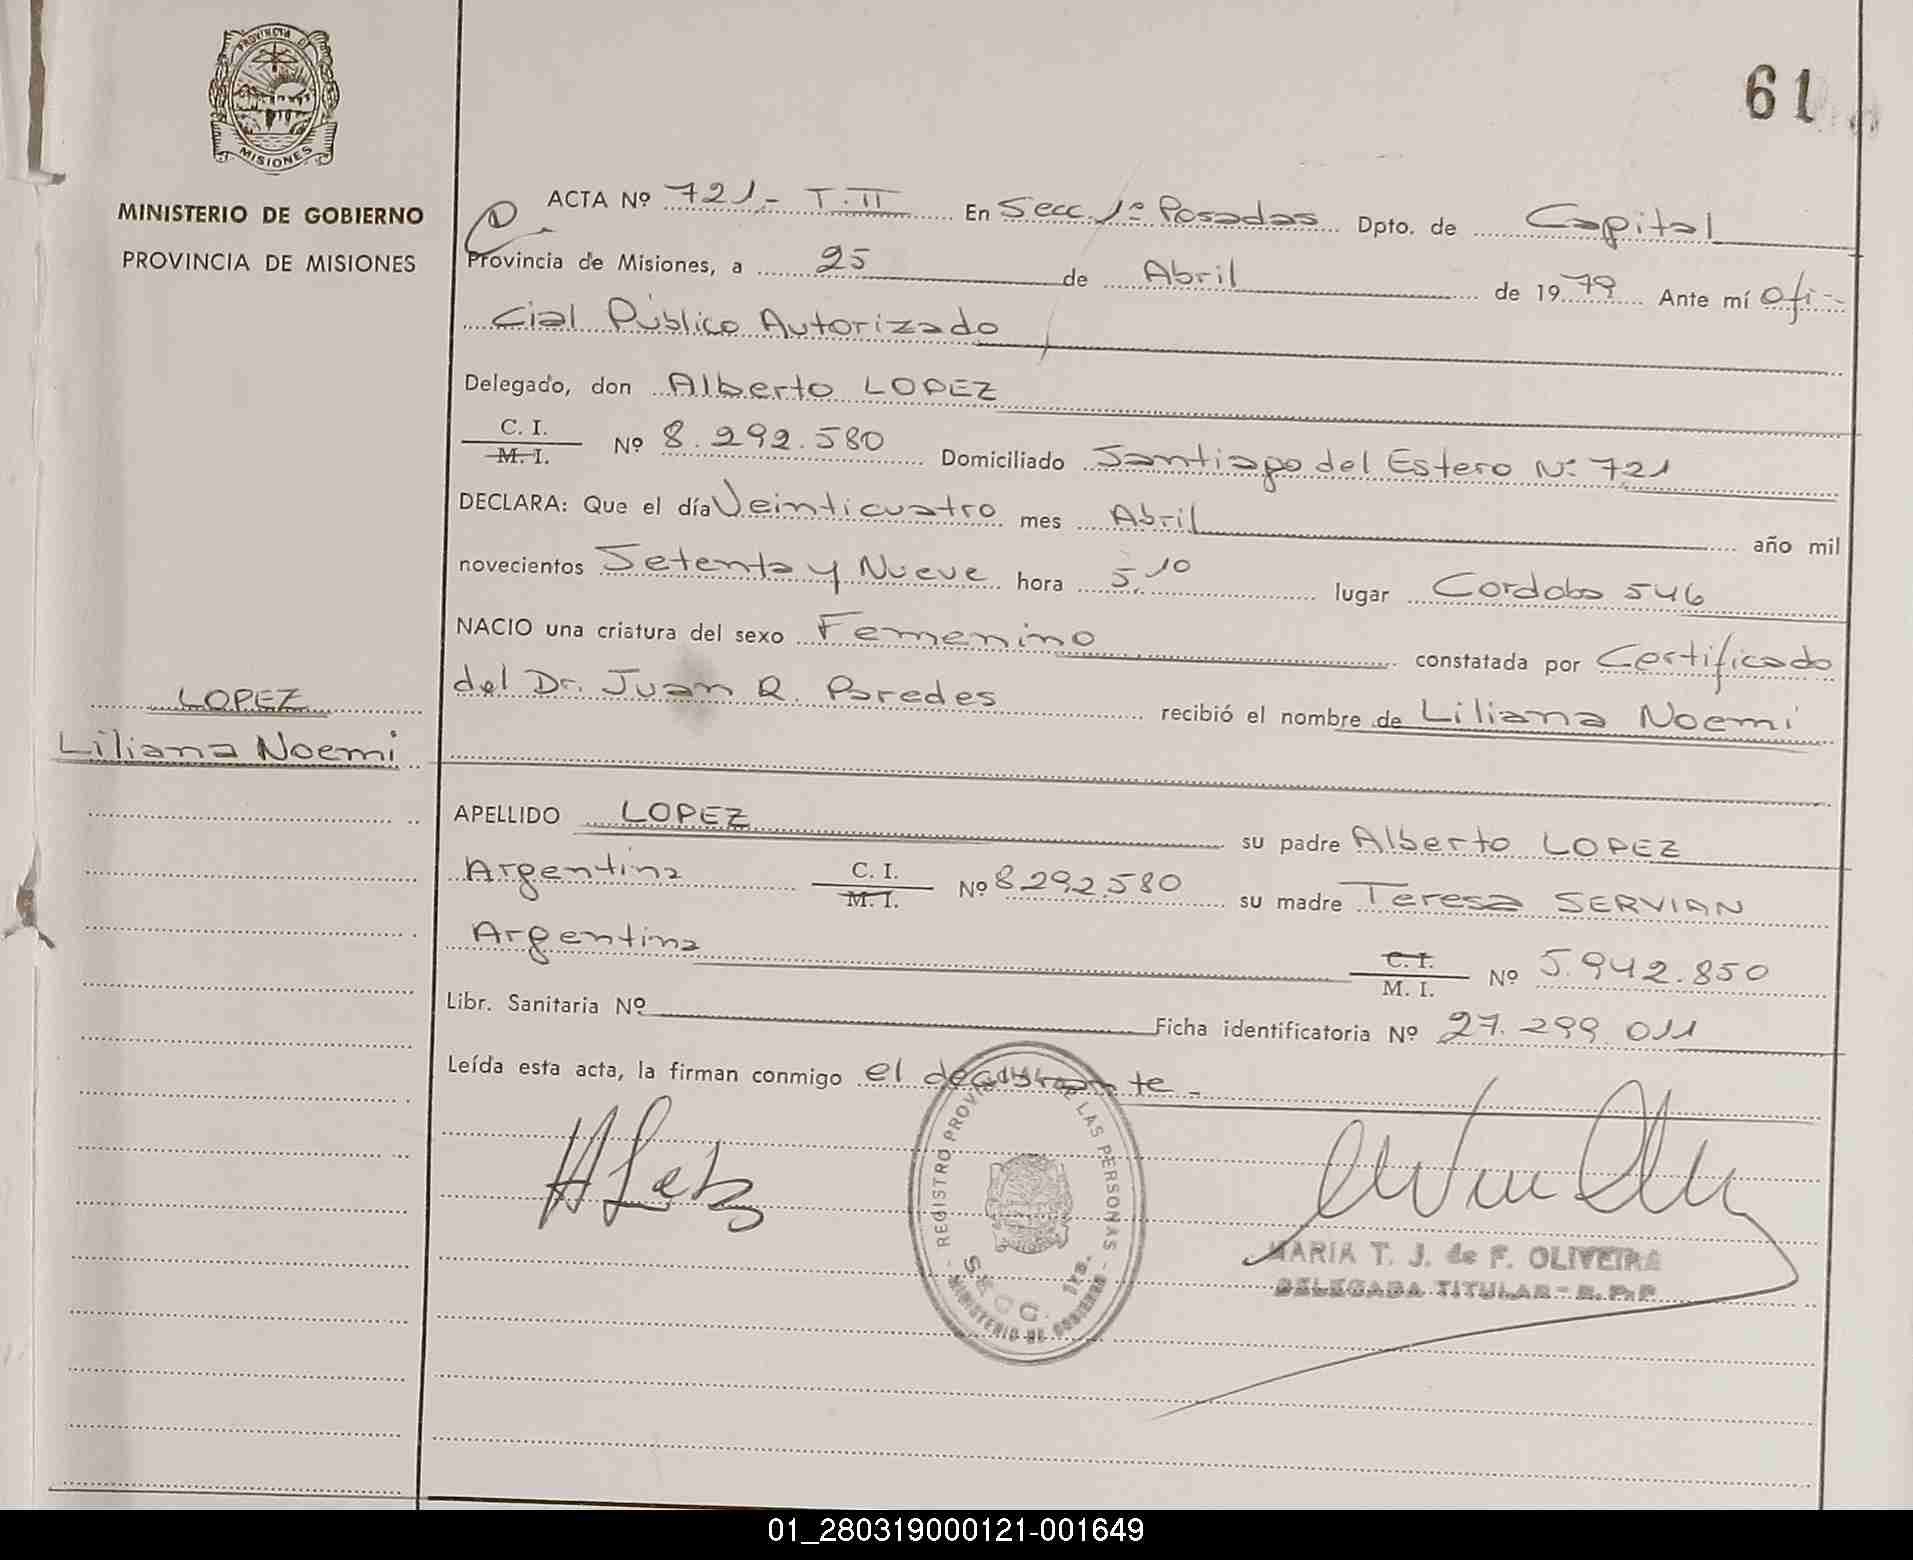 PROVINCIA DE
MISIONES
MINISTERIO DE GOBIERNO
PROVINCIA DE MISIONES
61
ACTA Nº 721.- T.II En Secc. 1º Posadas Dpto. de Capital
Provincia de Misiones, a 25 de Abril de 1979 Ante mí Ofi-
cial Público Autorizado
Delegado, don Alberto LOPEZ
C. I.
M. I. Nº 8.292.580 Domiciliado Santiago del Estero Nº 721
DECLARA: Que el día Veinticuatro mes Abril año mil
novecientos Setenta y Nueve hora 5.10 lugar Cordoba 546
NACIO una criatura del sexo Femenino constatada por Certificado
del Dr. Juan R. Paredes recibió el nombre de Liliana Noemi
LOPEZ
Liliana Noemi
APELLIDO LOPEZ su padre Alberto LOPEZ
Argentina C. I.
M. I. Nº 8.292.580 su madre Teresa SERVIAN
Argentina C. I.
M. I. Nº 5.942.850
Libr. Sanitaria Nº Ficha identificatoria Nº 27.299.011
Leída esta acta, la firman conmigo el declarante -
REGISTRO PROVINCIAL DE LAS PERSONAS
SECC. 1ra.
MINISTERIO DE GOBIERNO
MARIA T. J. de F. OLIVEIRA
DELEGADA TITULAR - R. P. P.
01_280319000121-001649